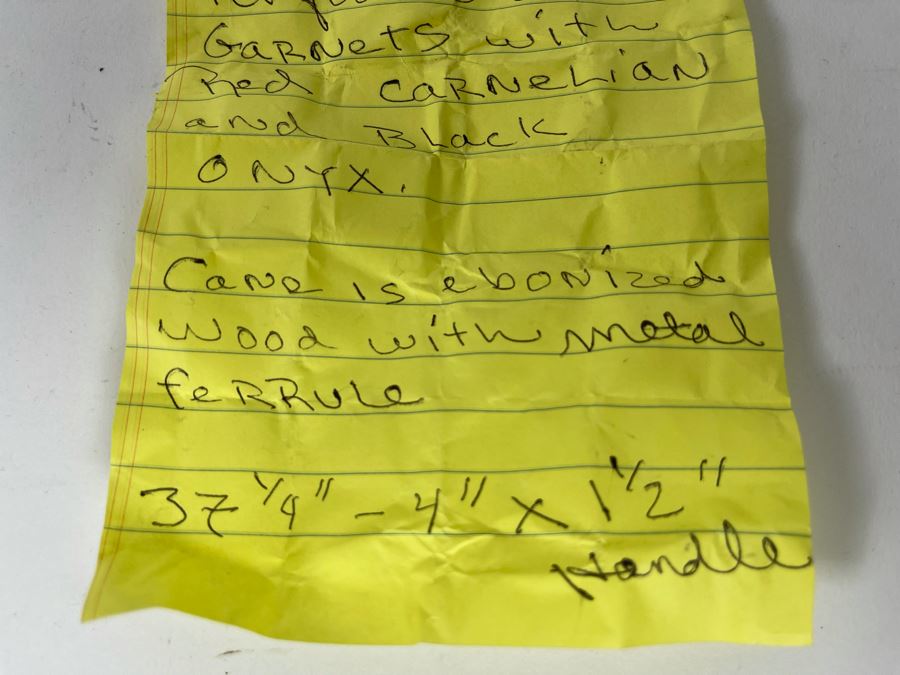 GARNETS with
Red CARNELIAN
and BLACK
ONYX.
Cane is ebonized
Wood with metal
feRRULe
37 1/4" - 4" x 1 1/2"
Handle